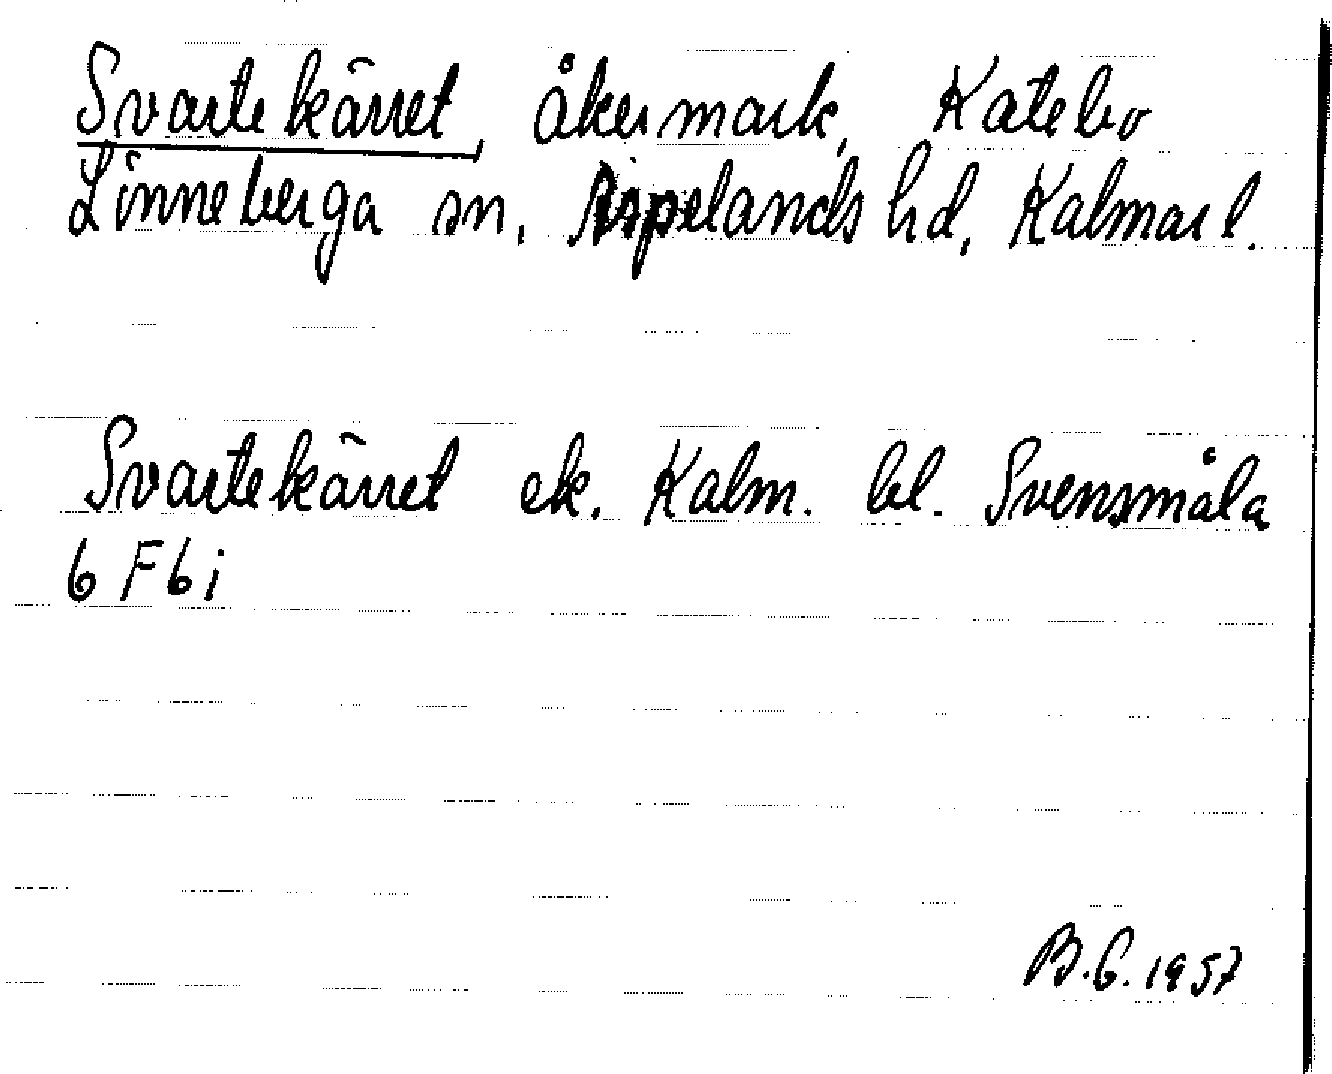 Svartekärret, åkermark, Katebo
Linneberga sn, Aspelands hd, Kalmar l.
Svartekärret ek. Kalm. bl. Svensmåla
6 F 6 i
B.G. 1957